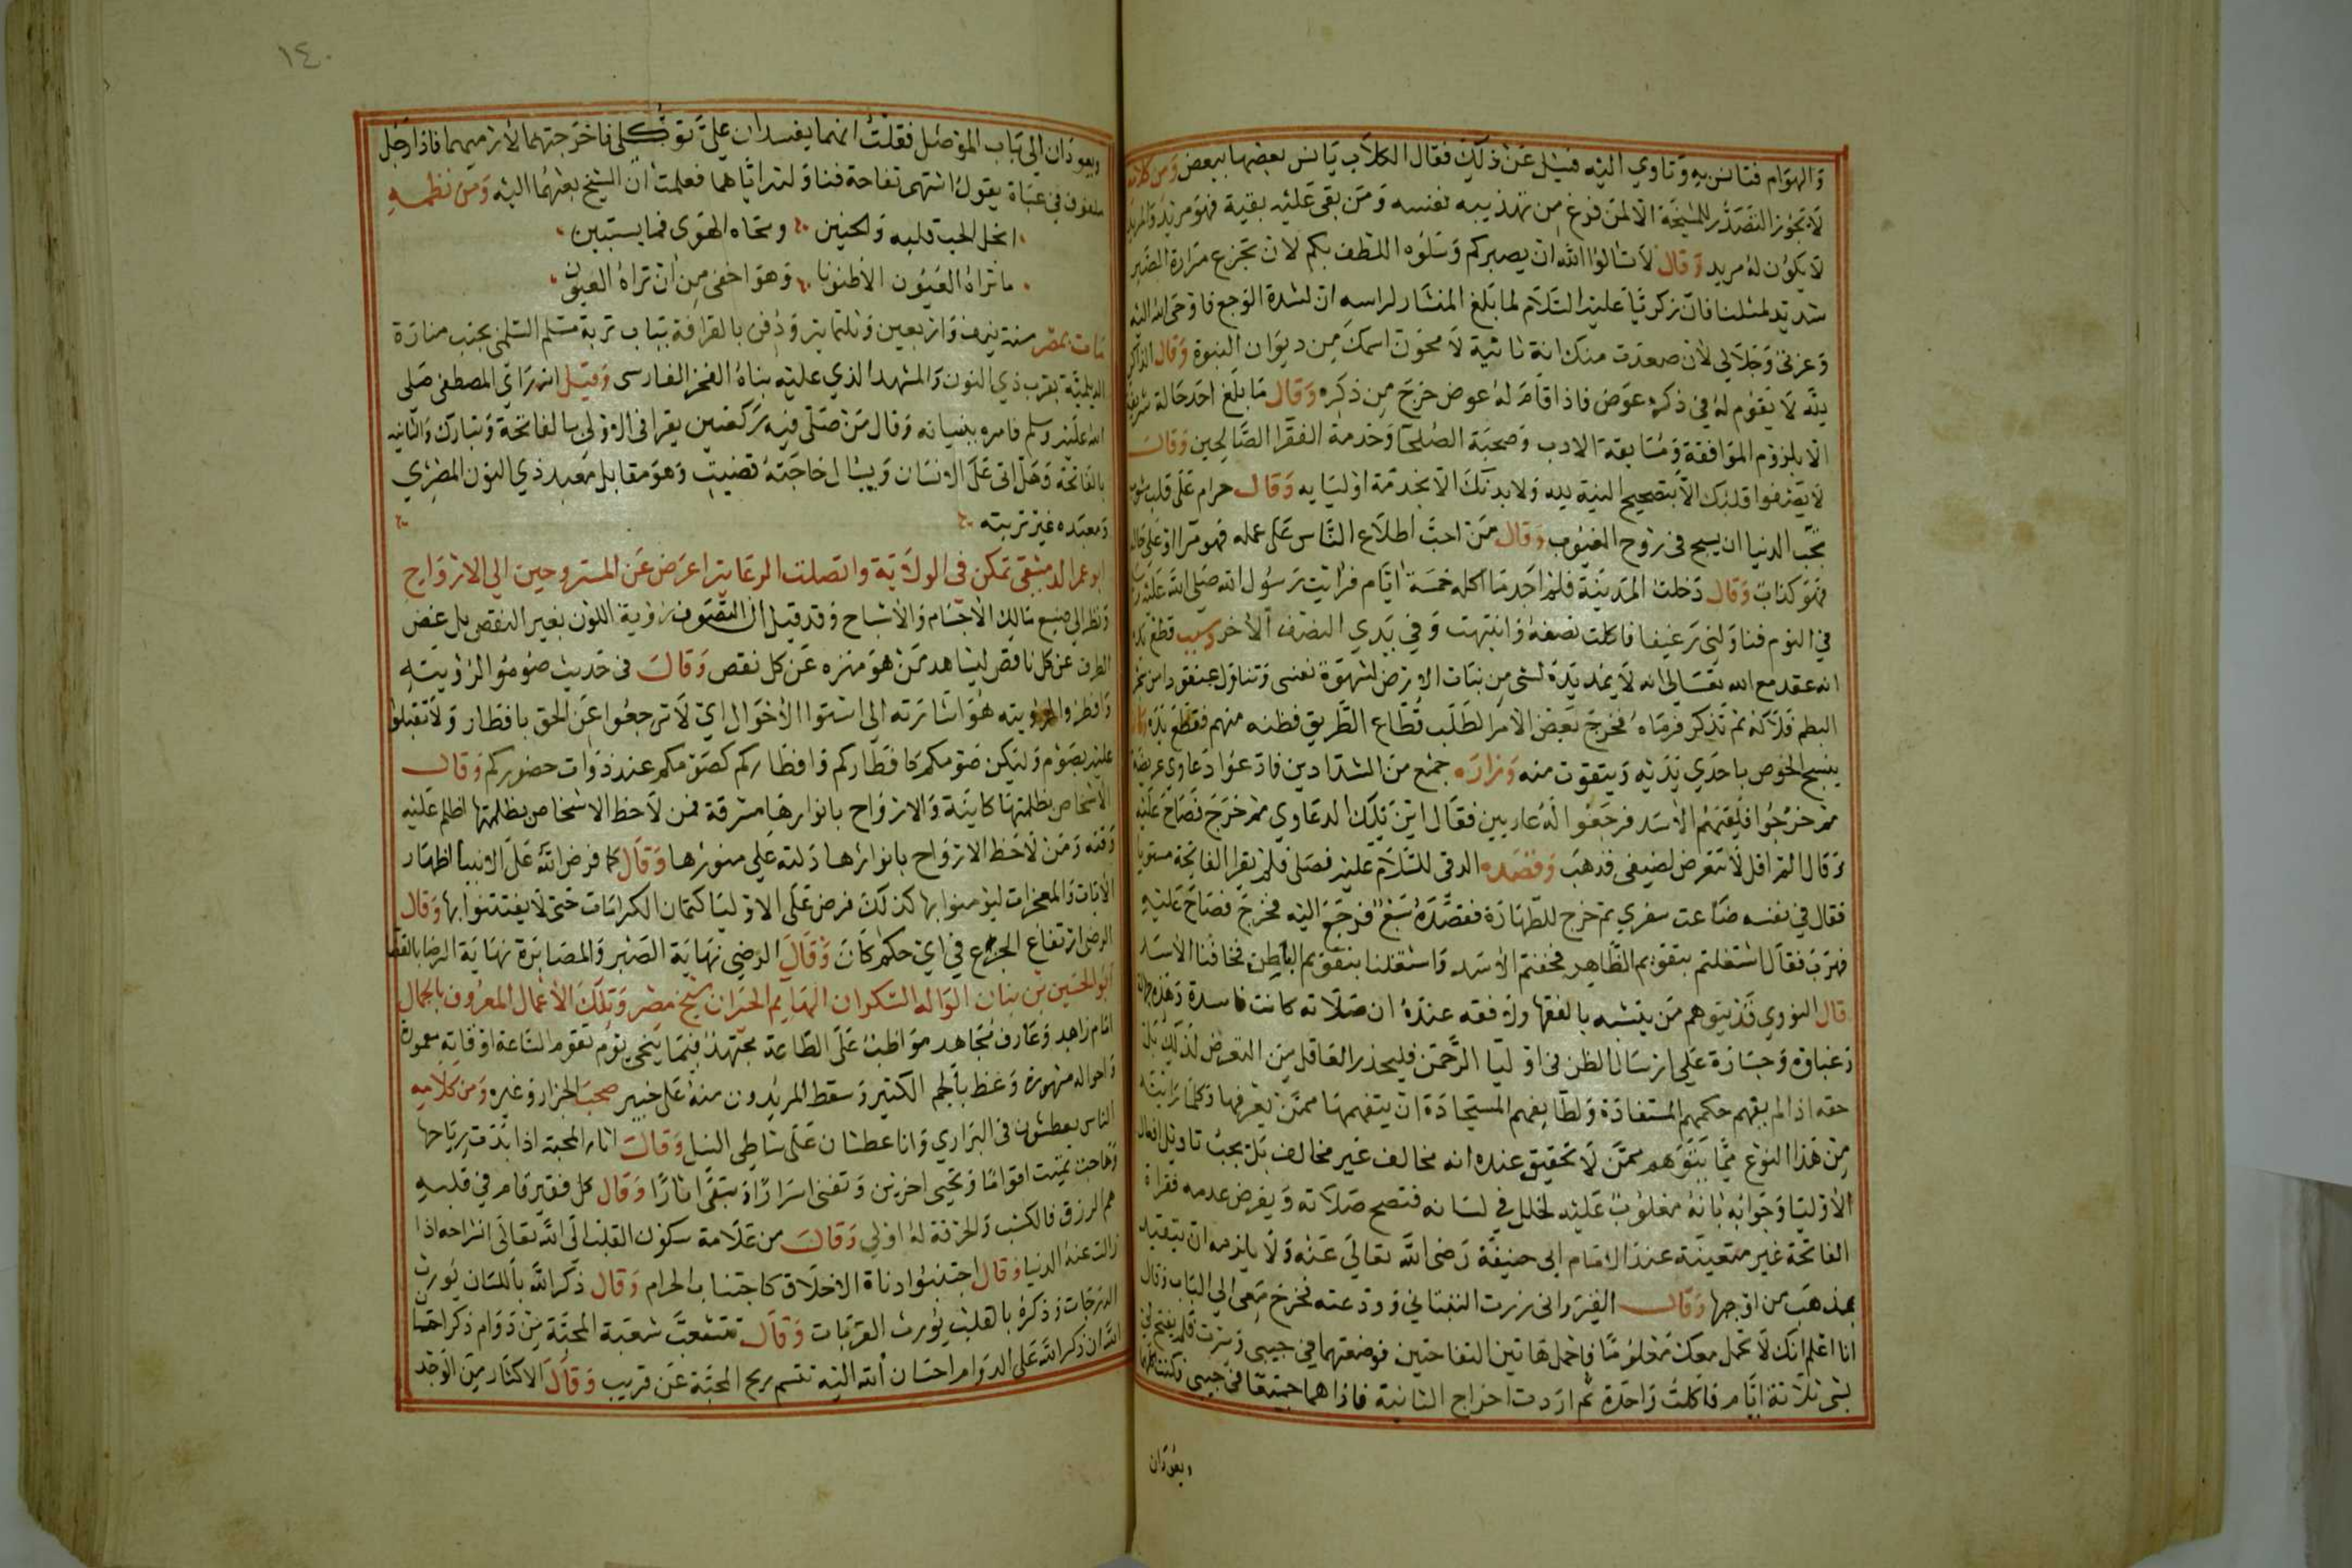 والهوام فتانس به وتاوي اليه فسئل عن ذلك فقال الكلاب يانس بعضها ببعض ومن كلامه
لا تجوز التصدر للمشيخة الا لمن فرغ من تهذيبه نفسه ومن بقى عليه بقية فهو مريد والمريد
لا يكون له مريد وقال لا تسالوا الله ان يصبركم وسلوه اللطف بكم لان تجرع مرارة الصبر
شديد لمثلنا فان زكريا عليه السلام لما بلغ المنشار لراسه ان لشدة الوجع فاوحى الله اليه
وعزتي وجلالي لان صعدت منك انة ثانية لا محون اسمك من ديوان النبوة وقال الذاكر
لله لا يقوم له في ذكره عوض فاذا قام له عوض خرج من ذكره وقال ما بلغ احد حالة شريفة
الا بلزوم الموافقة ومتابعة الادب وصحبة الصلحا وخدمة الفقرا الصالحين وقال
لا يصفوا قلبك الا بتصحيح النية لله ولا بدنك الا بخدمة اوليايه وقال حرام على قلب مشوب
بحب الدنيا ان يسبح في روح الغيوب وقال من احب اطلاع الناس على عمله فهو مرا او على حاله
فهو كذاب وقال دخلت المدينة فلم اجد ما اكله خمسة ايام فرايت رسول الله صلى الله عليه وسلم
في النوم فناولني رغيفا فاكلت نصفه وانتبهت وفي يدي النصف الاخر وسبب قطع يده
انه عقد مع الله تعالى انه لا يمد يده لشي من نبات الارض لشهوة نفسي وتناول عنقودا من شجر
البطم فلاكه ثم تذكر فرماه فخرج بعض الامرا لطلب قطاع الطريق فظنه منهم فقطع يده
ينسج الخوص باحدي يديه ويتقوت منه وزاره جمع من البغدادين فادعوا دعاوي عريضة
ثم خرجوا فلقيهم الاسد فرجعوا له هاربين فقال اين تلك الدعاوي ثم خرج فصاح عليه
وقال الم اقل لا تتعرض لضيفي فذهب وقصده الدقى للسلام عليه فصلى فلم يقرا الفاتحة مستويا
فقال في نفسه ضاعت سفري ثم خرج للطهارة فقصده سبع فرجع اليه فخرج فصاح عليه
فهرب فقال اشتغلتم بتقويم الظاهر فخفتم الاسد واشتغلنا بتقويم الباطن فخافنا الاسد
قال النووي قد يتوهم من يتشبه بالفقها ولا فقه عنده ان صلاته كانت فاسدة وهذه جهالة
وغباوة وجسارة على ارسال الظن في اوليا الرحمن فليحذر العاقل من التعرض لذلك بل
حقه اذا لم يفهم حكمهم المستفادة ولطايفهم المستجادة ان يتفهمها ممن يعرفها وكلما رايته
من هذا النوع مما يتوهم ممن لا تحقيق عنده انه مخالف غير مخالف بل يجب تاويل افعال
الاوليا وجوابه بانه مغلوب عليه لخلل في لسانه فتصح صلاته وبفرض عدمه فقراة
الفاتحة غير متعينة عند الامام ابى حنيفة رضى الله تعالى عنه ولا يلزمه ان يتقيد
بمذهب من اوجبها وقال الفرغانى زرت التيناتي وودعته فخرج معى الي الباب وقال
انا اعلم انك لا تحمل معك معلوما فاحمل هاتين التفاحتين فوضعتهما في جيبى وسرت فلم يفتح لي
بشى ثلاثة ايام فاكلت واحدة ثم اردت اخراج الثانية فاذا هما جميعا في جيبى فكنت اكلهما
ويعودان
١٤٠
ويعودان الي باب الموصل فقلت انهما يفسدان علي توكلى فاخرجتهما لارميهما فاذا رجل
ملفوف في عباة يقول اشتهى تفاحة فناولته اياهما فعلمت ان الشيخ بعثهما اليه ومن نظمه
انحل الحب قلبه والحنين ومحاه الهوى فما يستبين
ما تراه العيون الا ظنونا وهو اخفى من ان تراه العيون
مات بمصر سنة نيف واربعين وثلثماية ودفن بالقرافة بباب تربة مسلم السلمى بجنب منارة
الديلمية بقرب ذي النون والمشهد الذي عليه بناه الفخر الفارسى وقيل انه راي المصطفى صلى
الله عليه وسلم فامره ببنيانه وقال من صلى فيه ركعتين يقرا في الاولى بالفاتحة وتبارك والثانيه
بالفاتحة وهل اتى على الانسان ويسال حاجته قضيت وهو مقابل معبد ذي النون المصري
ومعبده غير تربته
ابو عمر الدمشقى تمكن في الولاية واتصلت الرعاية اعرض عن المستروحين الي الارواح
ونظر الي صنيع مالك الاجسام والاشباح وقد قيل ان التصوف رؤية اللون بغير النقص بل غض
الطرف عن كل ناقص ليشاهد من هو منزه عن كل نقص وقال في حديث صوموا لرؤيته
وافطروا لرؤيته هو اشارته الي استوا الاحوال اي لا ترجعوا عن الحق بافطار ولا تقبلوا
عليه بصوم وليكن صومكم كافطاركم وافطاركم كصومكم عند ذوات حضوركم وقال
الاشخاص بظلمتها كاينة والارواح بانوارها مشرقة فمن لاحظ الاشخاص بظلمتها اظلم عليه
وقته ومن لاحظ الارواح بانوارها دلته على منورها وقال كما فرض الله على الانبيا اظهار
الايات والمعجزات ليؤمنوا بها كذلك فرض على الاوليا كتمان الكرامات حتى لا يفتتنوا بها وقال
الرضى ارتفاع الجزع في اي حكم كان وقال الرضى نهاية الصبر والمصابرة نهاية الرضا بالقضا
ابو الحسين بن بنان الواله السكران الهايم الحيران شيخ مصر وتلك الاعمال المعروف بالجمال
امام زاهد وعارف مجاهد مواظب على الطاعة مجتهد فيما ينجي يوم تقوم الساعة اوقاته معمورة
واحواله مشهورة وعظ بالجم الكثير وسقط المريدون منه على خبير صحب الخراز وغيره ومن كلامه
الناس يعطشون في البراري وانا عطشان على شاطى النيل وقال اثار المحبة اذا بدت رياحها
وهاجت تميت اقواما وتحيى اخرين وتفنى اسرارا وتبقى اثارا وقال كل فقير قام في قلبه
هم الرزق فالكسب والحرفة له اولي وقال من علامة سكون القلب الى الله تعالى انشراحه اذا
زالت عنه الدنيا وقال اجتنبوا دناة الاخلاق كاجتناب الحرام وقال ذكر الله باللسان يورث
الدرجات وذكره بالقلب يورث القربات وقال تتشعب شعبة المحبة من دوام ذكر احسان
الله ان ذكر الله على الدوام احسان الله اليه تنسم ريح المحبة عن قريب وقال الاكثار من الوجد